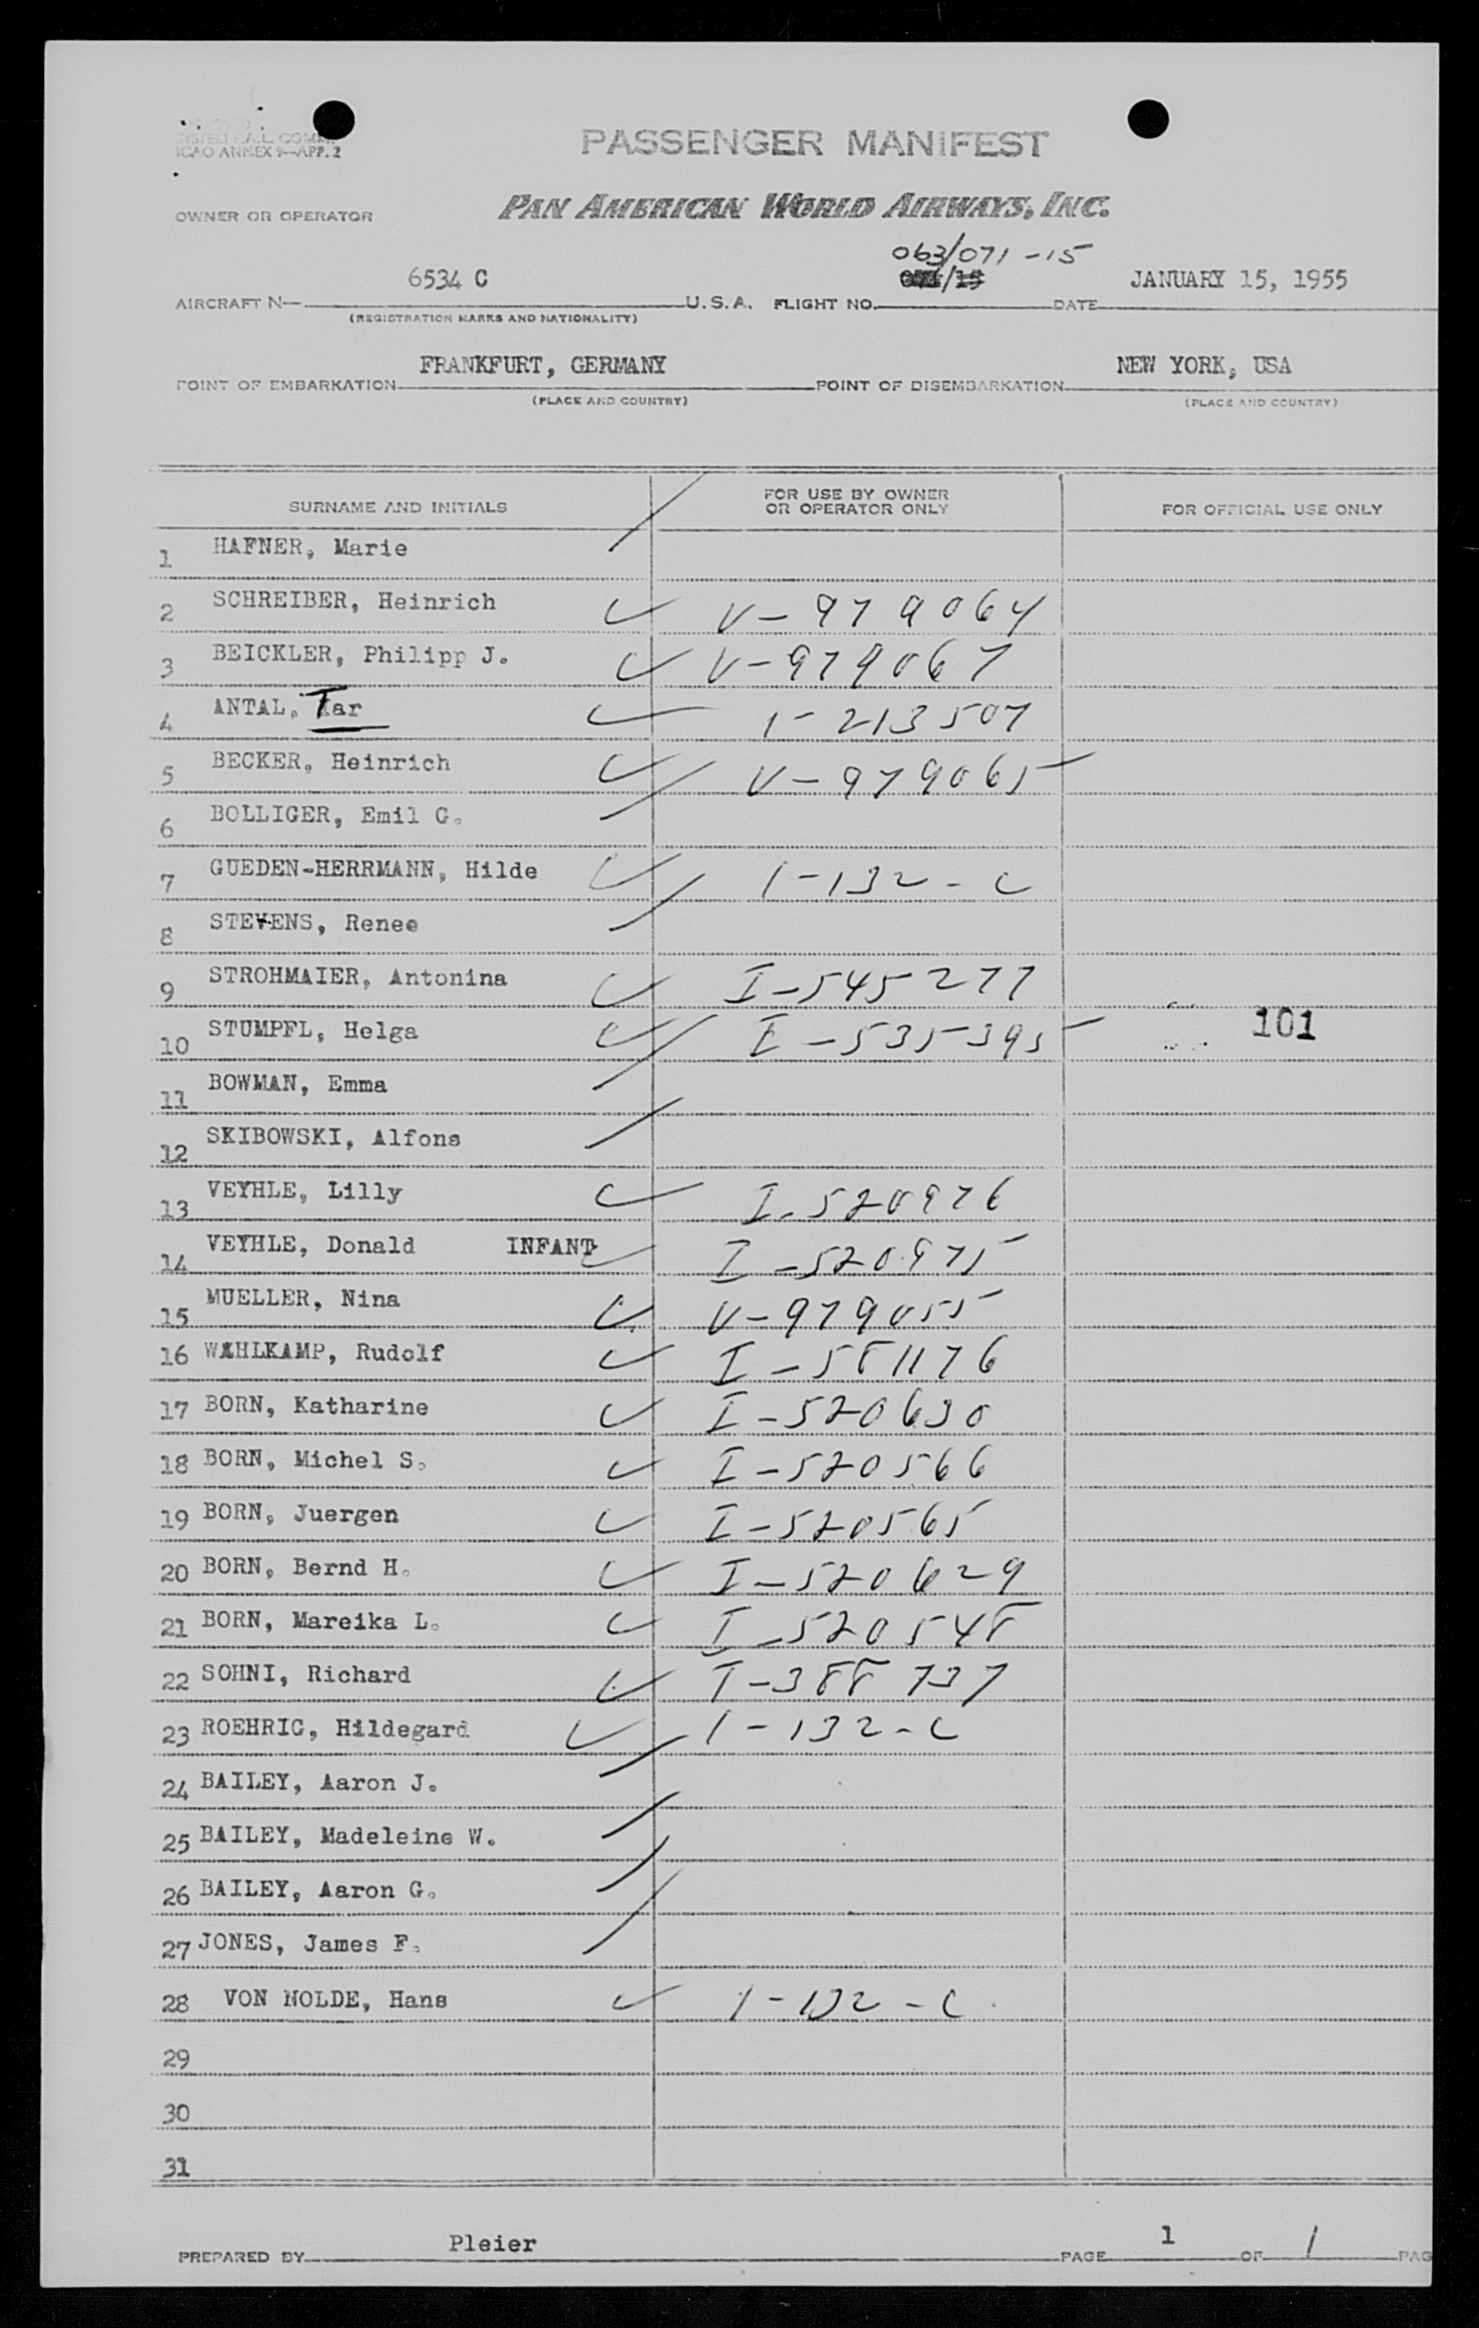 ICAO ANNEX 9—APP. 2
PASSENGER MANIFEST
OWNER OR OPERATOR PAN AMERICAN WORLD AIRWAYS, INC.
063/071-15
AIRCRAFT N— 6534 C U.S.A. FLIGHT NO. /15 DATE JANUARY 15, 1955
(REGISTRATION MARKS AND NATIONALITY)
POINT OF EMBARKATION FRANKFURT, GERMANY POINT OF DISEMBARKATION NEW YORK, USA
(PLACE AND COUNTRY) (PLACE AND COUNTRY)
SURNAME AND INITIALS FOR USE BY OWNER OR OPERATOR ONLY FOR OFFICIAL USE ONLY
1 HAFNER, Marie
2 SCHREIBER, Heinrich V-979064
3 BEICKLER, Philipp J. V-979067
4 ANTAL, Tar 1-213507
5 BECKER, Heinrich V-979065
6 BOLLIGER, Emil G.
7 GUEDEN-HERRMANN, Hilde 1-132-C
8 STEVENS, Renee
9 STROHMAIER, Antonina I-545277
10 STUMPFL, Helga I-535395 101
11 BOWMAN, Emma
12 SKIBOWSKI, Alfons
13 VEYHLE, Lilly I-520976
14 VEYHLE, Donald INFANT I-520975
15 MUELLER, Nina V-979055
16 WAHLKAMP, Rudolf I-581176
17 BORN, Katharine I-520630
18 BORN, Michel S. I-520566
19 BORN, Juergen I-520565
20 BORN, Bernd H. I-520629
21 BORN, Mareika L. I-520548
22 SOHNI, Richard I-388737
23 ROEHRIG, Hildegard 1-132-C
24 BAILEY, Aaron J.
25 BAILEY, Madeleine W.
26 BAILEY, Aaron G.
27 JONES, James F.
28 VON NOLDE, Hans 1-132-C
29
30
31
PREPARED BY Pleier PAGE 1 OF 1 PAG